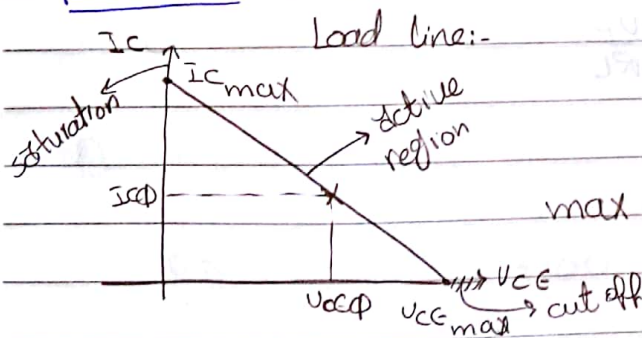 Load line:-
Ic
Ic max
saturation
active
region
ICQ
max
VCE
VCEQ
VCE max
cut off